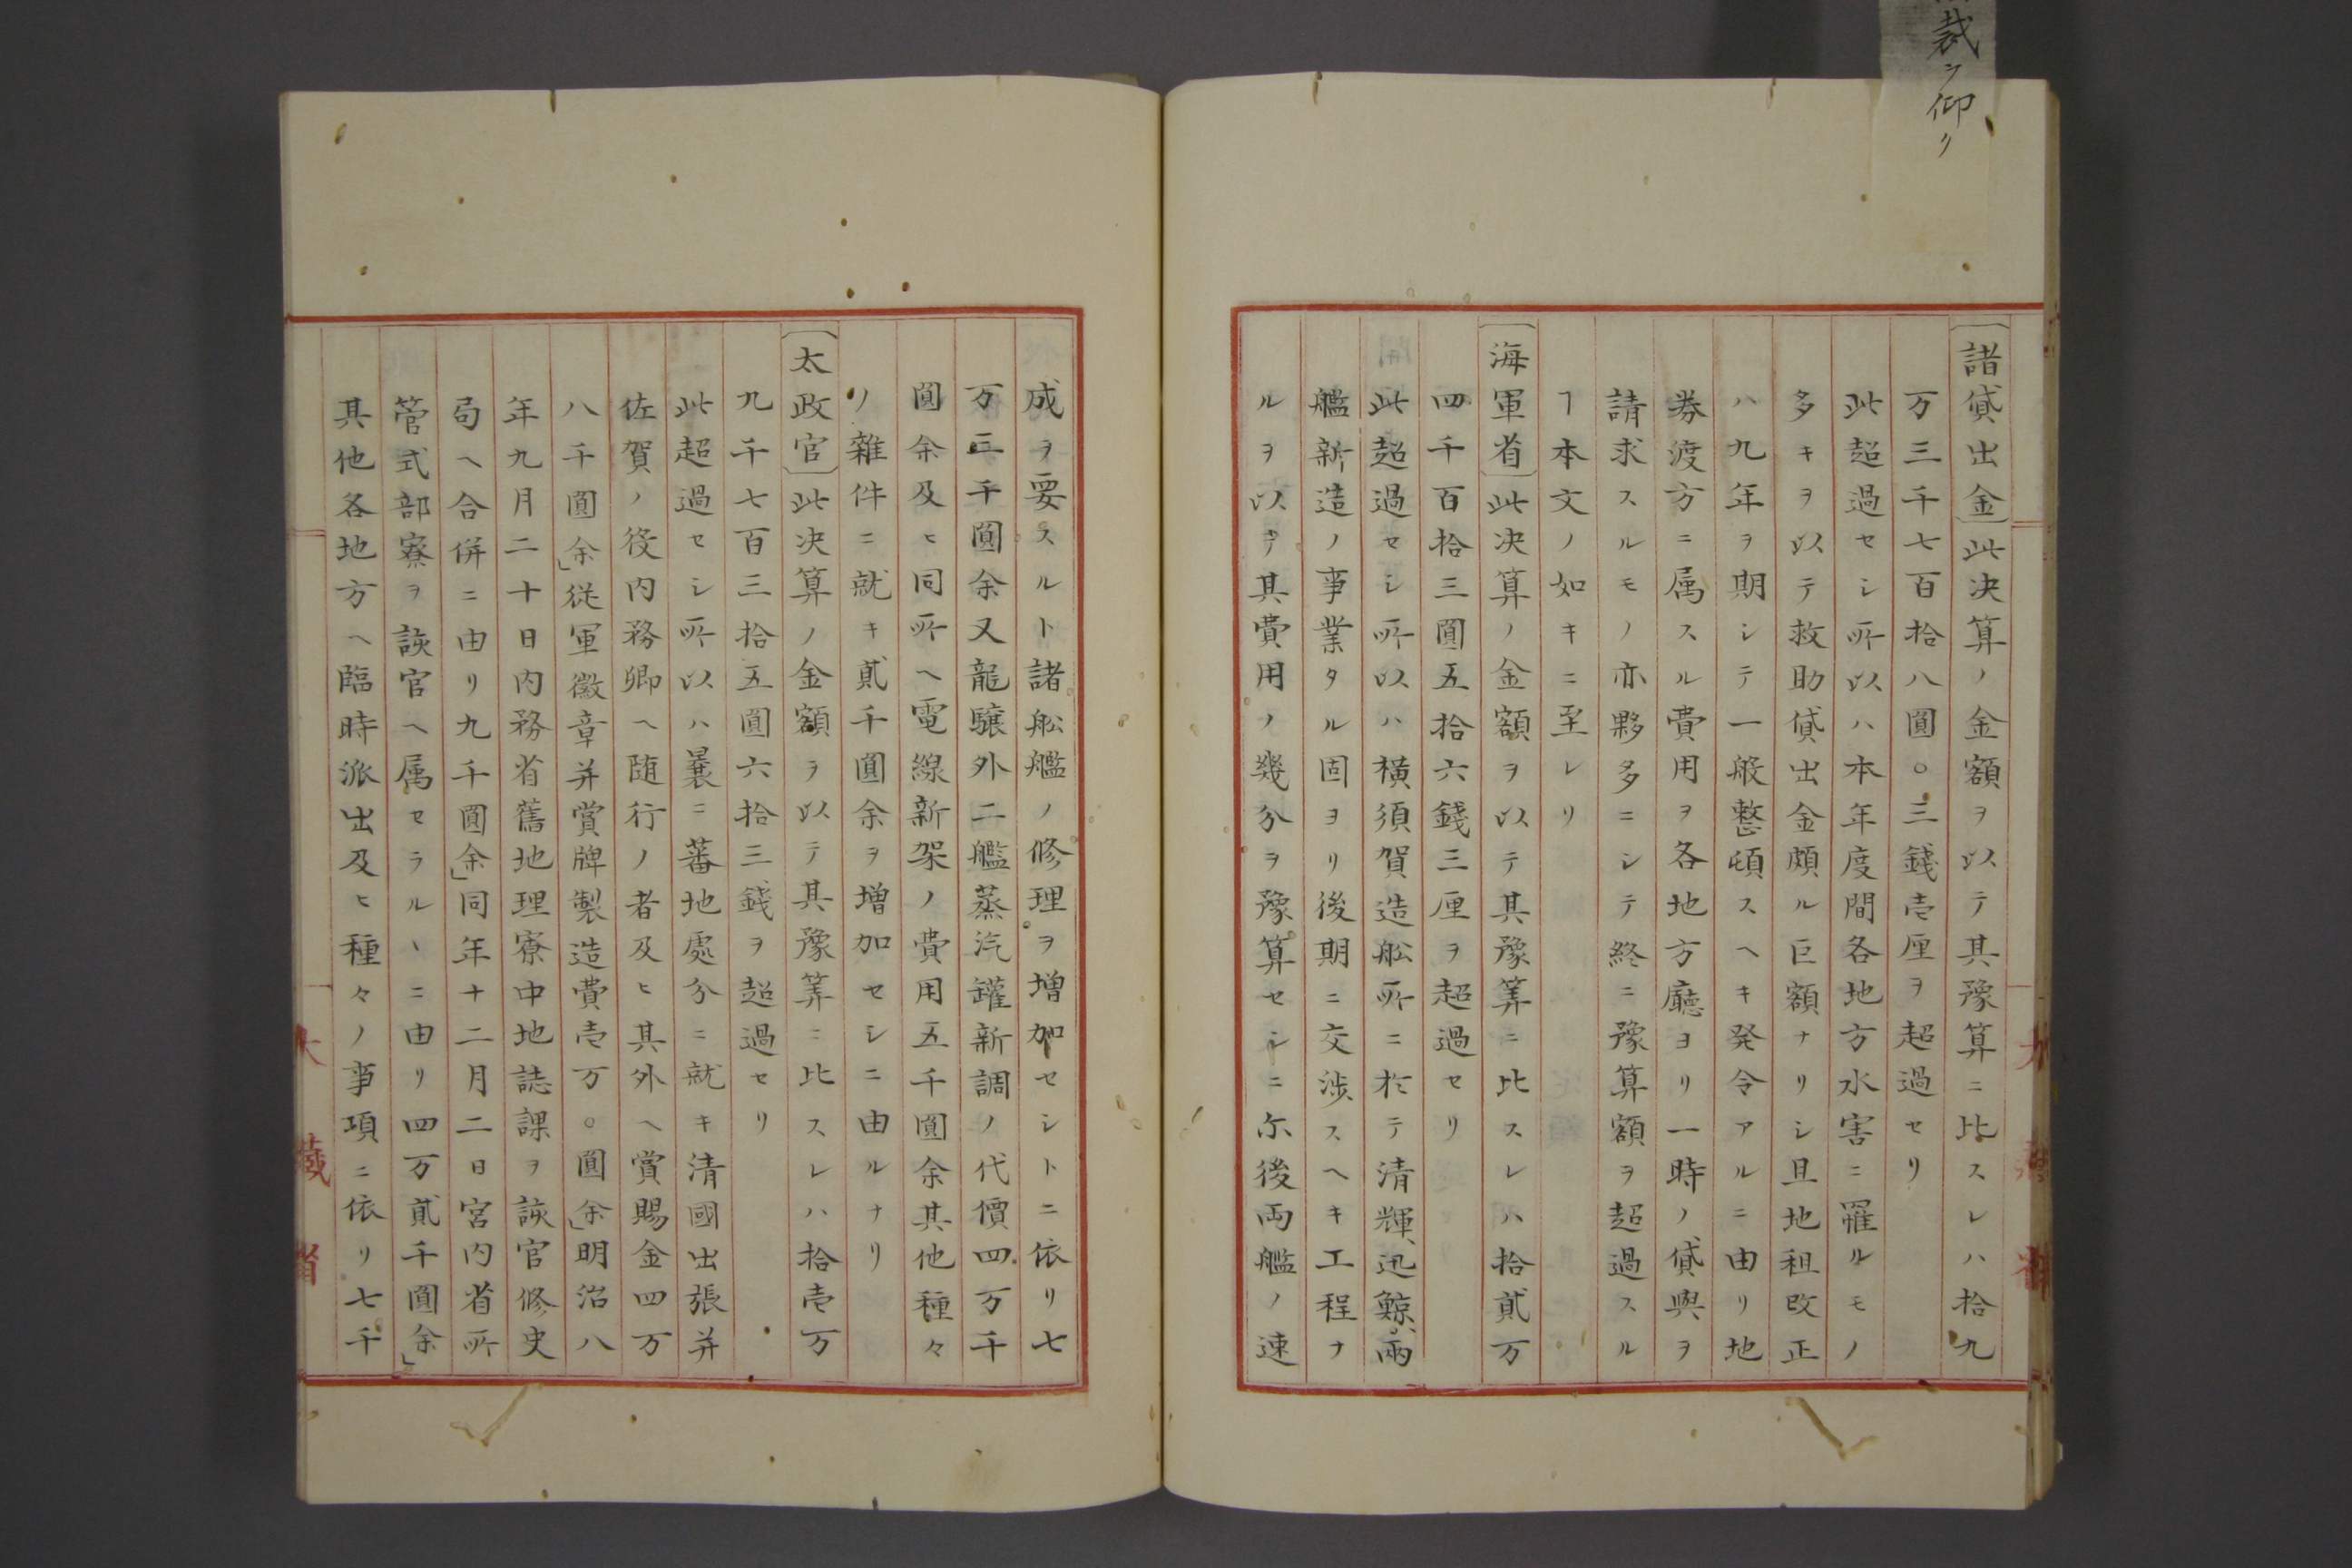 裁ヲ仰リ
〔諸貸出金〕此决算ノ金額ヲ以テ其豫算ニ比スレハ拾九
万三千七百拾八圓〇三錢壱厘ヲ超過セリ
此超過セシ所以ハ本年度間各地方水害ニ罹ルモノ
多キヲ以テ救助貸出金頗ル巨額ナリシ且地租改正
ハ九年ヲ期シテ一般整頓スヘキ発令アルニ由リ地
券渡方ニ属スル費用ヲ各地方廳ヨリ一時ノ貸與ヲ
請求スルモノ亦夥多ニシテ終ニ豫算額ヲ超過スル
ヿ本文ノ如キニ至レリ
〔海軍省〕此决算ノ金額ヲ以テ其豫筭ニ比スレハ拾貳万
四千百拾三圓五拾六錢三厘ヲ超過セリ
此超過セシ所以ハ横須賀造舩所ニ於テ清輝、迅鯨、両
艦新造ノ事業タル固ヨリ後期ニ交渉スヘキ工程ナ
ルヲ以テ其費用ノ幾分ヲ豫算セシニ尓後両艦ノ速
成ヲ要スルト諸舩艦ノ修理ヲ増加セシトニ依リ七
万三千圓余又龍驤外二艦蒸汽罐新調ノ代價四万千
圓余及ヒ同所ヘ電線新架ノ費用五千圓余其他種々
ノ雜件ニ就キ貳千圓余ヲ増加セシニ由ルナリ
〔太政官〕此决算ノ金額ヲ以テ其豫筭ニ比スレハ拾壱万
九千七百三拾五圓六拾三錢ヲ超過セリ
此超過セシ所以ハ曩ニ蕃地處分ニ就キ清國出張并
佐賀ノ役内務卿ヘ随行ノ者及ヒ其外ヘ賞賜金四万
八千圓余」従軍徽章并賞牌製造費壱万〇圓余」明治八
年九月二十日内務省舊地理寮中地誌課ヲ該官修史
局ヘ合併ニ由リ九千圓余」同年十二月二日宮内省所
管式部寮ヲ該官ヘ属セラルヽニ由リ四万貳千圓余」
其他各地方ヘ臨時派出及ヒ種々ノ事項ニ依リ七千
大藏省